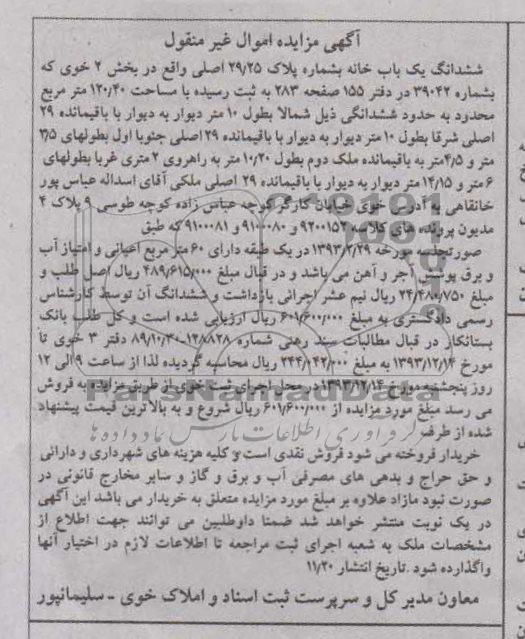 آگهی مزایده اموال غیر منقول
ششدانگ یک باب خانه بشماره پلاک ۲۹/۲۵ اصلی واقع در بخش ۲ خوی که
بشماره ۳۹۰۴۲ در دفتر ۱۵۵ صفحه ۲۸۳ به ثبت رسیده با مساحت ۱۲۰/۴۰ متر مربع
محدود به حدود ششدانگی ذیل شمالا بطول ۱۰ متر دیوار به دیوار با باقیمانده ۲۹
اصلی شرقا بطول ۱۰ متر دیوار به دیوار با باقیمانده ۲۹ اصلی جنوبا اول بطولهای ۳/۵
متر و ۴/۵ متر به باقیمانده ملک دوم بطول ۱۰/۲۰ متر به راهروی ۲ متری غربا بطولهای
۶ متر و ۱۴/۱۵ متر دیوار به دیوار با باقیمانده ۲۹ اصلی ملکی آقای اسداله عباس پور
خانقاهی به آدرس خوی خیابان کارگر کوچه عباس زاده کوچه طوسی ۹ پلاک ۴
مدیون پرونده های کلاسه ۹۲۰۰۱۵۲ و ۹۱۰۰۰۸۰ و ۹۱۰۰۰۸۱ که طبق
صورتجلسه مورخه ۱۳۹۳/۲/۲۹ در یک طبقه دارای ۶۰ متر مربع اعیانی و امتیاز آب
و برق پوشش آجر و آهن می باشد و در قبال مبلغ ۴۸۹/۶۱۵/۰۰۰ ریال اصل طلب و
مبلغ ۲۴/۴۸۰/۷۵۰ ریال نیم عشر اجرائی بازداشت و ششدانگ آن توسط کارشناس
رسمی دادگستری به مبلغ ۶۰۱/۶۰۰/۰۰۰ ریال ارزیابی شده است و کل طلب بانک
بستانکار در قبال مطالبات سند رهنی شماره ۱۲۸۸۲۸-۸۹/۱۰/۳۰ دفتر ۳ خوی تا
مورخ ۱۳۹۳/۱۲/۱۴ به مبلغ ۲۴۴/۰۴۲/۰۰۰ ریال محاسبه گردیده لذا از ساعت ۹ الی ۱۲
روز پنجشنبه مورخ ۱۳۹۳/۱۲/۱۴ در محل اجرای ثبت خوی از طریق مزایده به فروش
می رسد مبلغ مورد مزایده از ۶۰۱/۶۰۰/۰۰۰ ریال شروع و به بالاترین قیمت پیشنهاد
شده از طرف
خریدار فروخته می شود فروش نقدی است و کلیه هزینه های شهرداری و دارائی
و حق حراج و بدهی های مصرفی آب و برق و گاز و سایر مخارج قانونی در
صورت نبود مازاد علاوه بر مبلغ مورد مزایده متعلق به خریدار می باشد این آگهی
در یک نوبت منتشر خواهد شد ضمنا داوطلبین می توانند جهت اطلاع از
مشخصات ملک به شعبه اجرای ثبت مراجعه تا اطلاعات لازم در اختیار آنها
واگذارده شود .تاریخ انتشار ۱۱/۲۰
معاون مدیر کل و سرپرست ثبت اسناد و املاک خوی - سلیمانپور
ParsNamadData
گردآوری اطلاعات پارس نماد داده ها